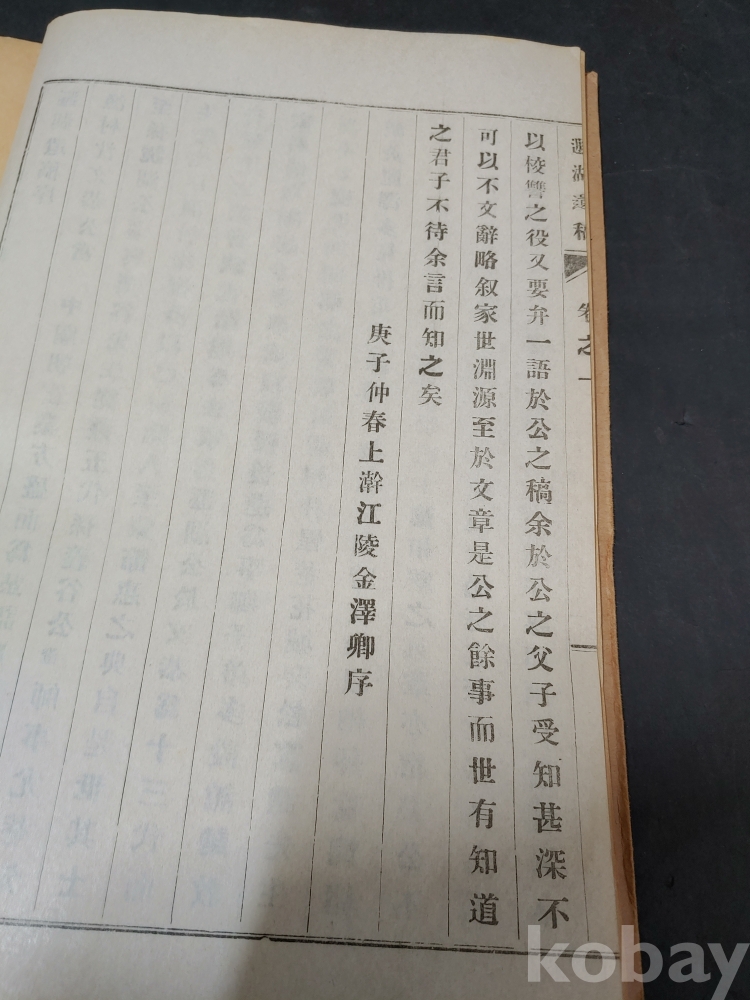 以校讐之役又要弁一語於公之稿余於公之父子受知甚深不
可以不文辭略叙家世淵源至於文章是公之餘事而世有知道
之君子不待余言而知之矣
庚子仲春上澣江陵金澤卿序
湖遺稿
卷之一
kobay